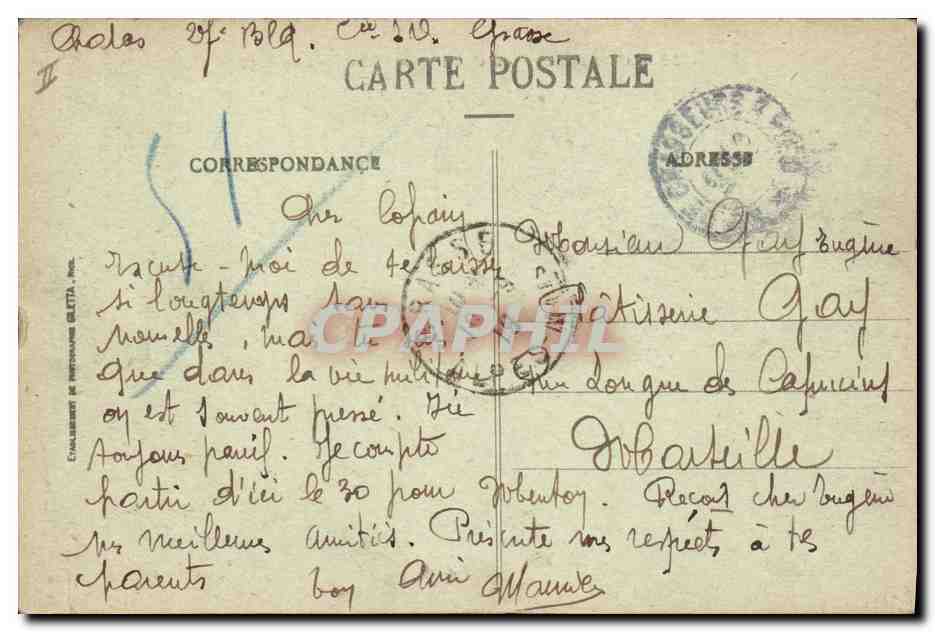 27e Bln. Cie Grasse
II
CARTE POSTALE
CHASSEURS A PIED
CORRESPONDANCE
ADRESSE
51
Cher Copain
Excuse-moi de te laisser
si longtemps sans
nouvelles, mais tu sais
que dans la vie militaire
on est souvent pressé. Ici
toujours pareil. Je compte
partir d'ici le 30 pour Menton. Reçois cher Eugène
mes meilleures amitiés. Présente mes respects à tes
parents
Ton ami
GRASSE
Monsieur Gay Eugène
Pâtisserie Gay
Rue Longue des Capucins
Marseille
ETABLISSEMENT DE PHOTOGRAPHIE GILETTA, NICE.
CPAPHIL.COM